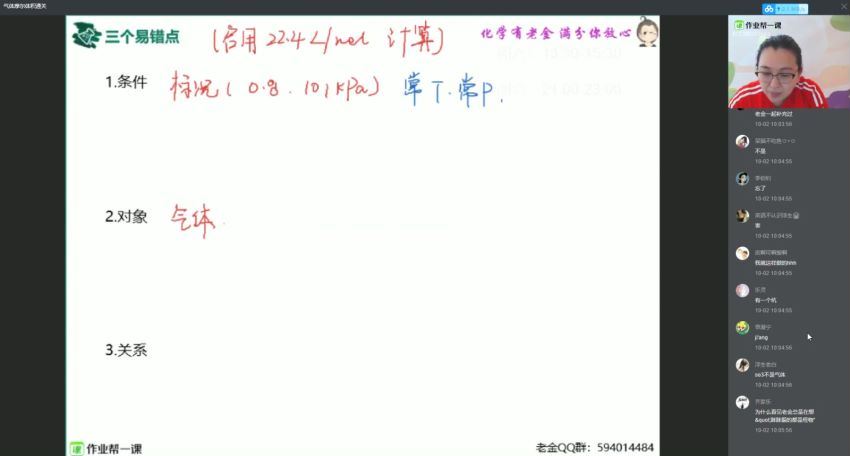 气体摩尔体积通关
三个易错点
(启用 22.4 L/mol 计算)
化学有老金 满分你放心
1.条件
标况( 0℃. 101kPa) 常T.常P.
2.对象
气体.
3.关系
作业帮一课
老金QQ群：594014484
作业帮一课
老金一起补充过
10-02 10:03:56
不是
10-02 10:04:55
忘了
10-02 10:04:55
10-02 10:04:56
我就这样做的hhh
10-02 10:04:55
乐灵
有一个坑
10-02 10:04:56
ji'ang
10-02 10:04:56
浮生老白
so3不是气体
10-02 10:04:56
齐家乐
10-02 10:05:56